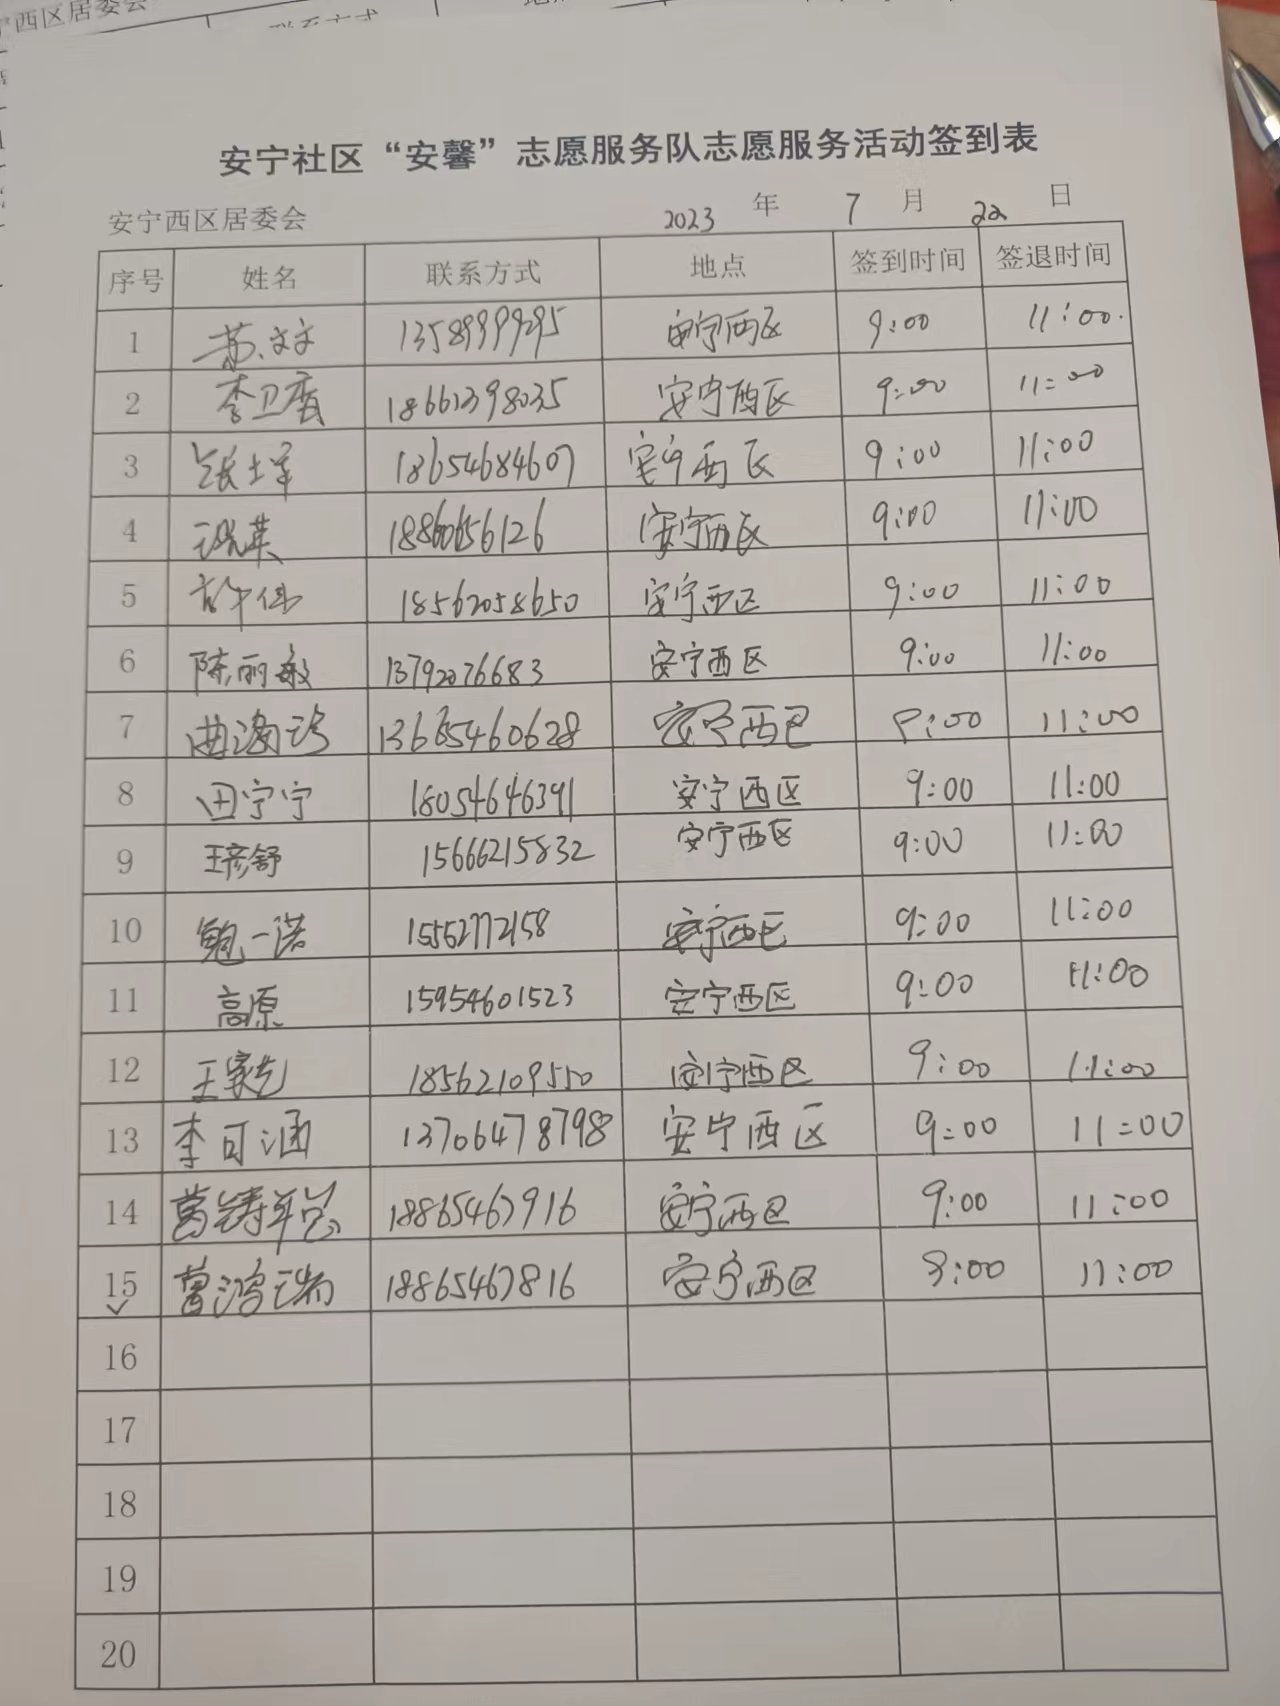 西区居委会
联系方式
安宁社区“安馨”志愿服务队志愿服务活动签到表
安宁西区居委会 2023 年 7 月 22 日
序号 姓名 联系方式 地点 签到时间 签退时间
1 苏文文 安宁西区 9:00 11:00.
2 李卫 18661398035 安宁西区 9:00 11:00
3 张 18654684607 安宁西区 9:00 11:00
4 安宁西区 9:00 11:00
5 许伟 18562058650 安宁西区 9:00 11:00
6 陈丽敏 13792076683 安宁西区 9:00 11:00
7 曲 13665460628 安宁西区 9:00 11:00
8 田宁宁 18054646391 安宁西区 9:00 11:00
9 王彦舒 15666215832 安宁西区 9:00 11:00
10 鲍一诺 15552772158 安宁西区 9:00 11:00
11 高原 15954601523 安宁西区 9:00 11:00
12 王家先 18562109550 安宁西区 9:00 11:00
13 李可涵 13706478798 安宁西区 9:00 11:00
14 葛 18865467916 安宁西区 9:00 11:00
15 18865467816 安宁西区 9:00 11:00
16
17
18
19
20